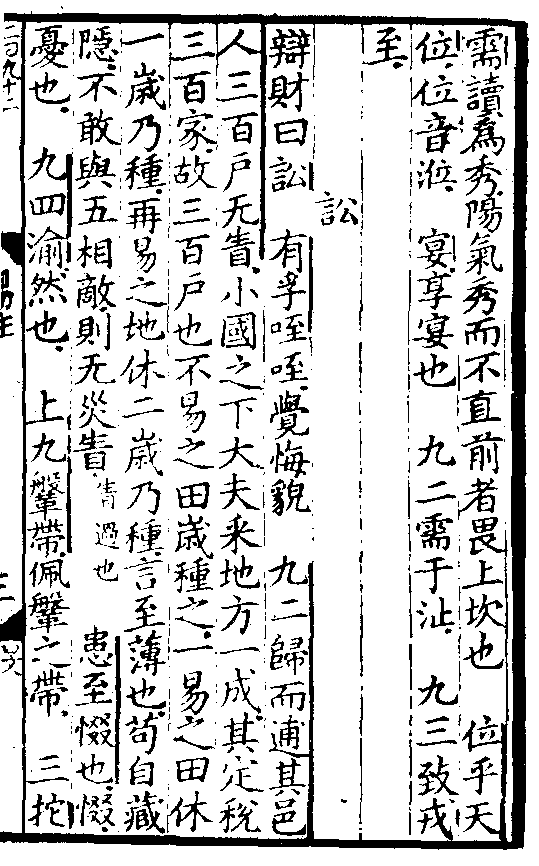 需讀為秀陽氣秀而不直前者畏上坎也　位乎天
位位音涖　宴享宴也　九二需于沚　九三致戎
至
訟
辯財曰訟　有孚咥咥覺悔貌　九二歸而逋其邑
人三百戶无眚小國之下大夫采地方一成其定稅
三百家故三百戶也不易之田歲種之一易之田休
一歲乃種再易之地休二歲乃種言至薄也苟自藏
隱不敢與五相敵則无災眚眚過也　患至惙也惙
憂也　九四渝然也　上九鞶帶佩鞶之帶　三拕